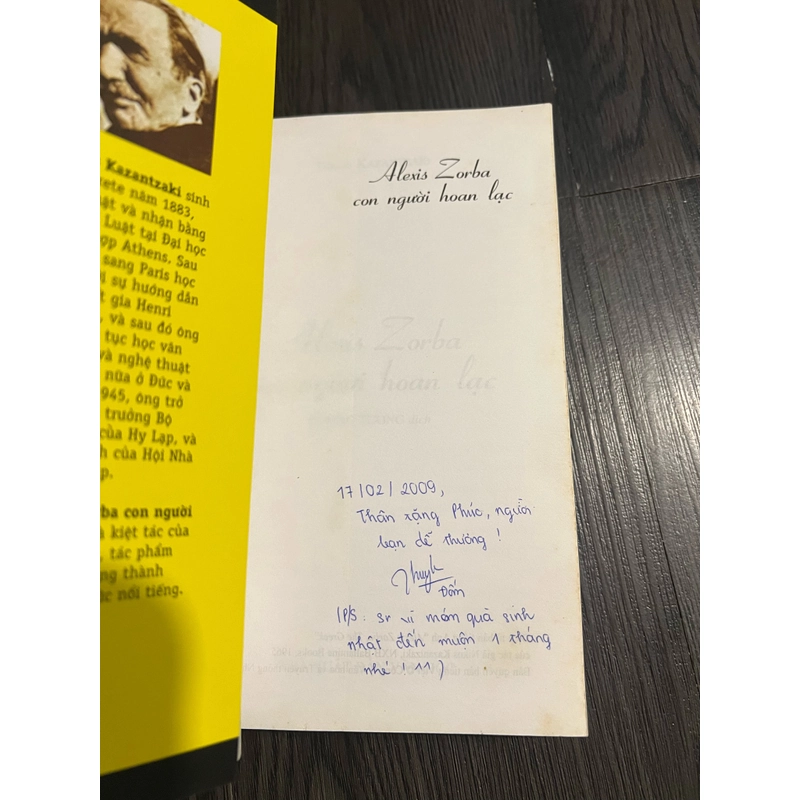 Kazantzaki sinh
ete năm 1883,
ật và nhận bằng
Luật tại Đại học
ợp Athens, Sau
sang Paris học
sự hướng dẫn
t gia Henri
, và sau đó ông
tục học văn
và nghệ thuật
nữa ở Đức và
945, ông trở
trưởng Bộ
của Hy Lạp, và
h của Hội Nhà
p.
rba con người
kiệt tác của
, tác phẩm
ng thành
ớc nổi tiếng.
Alexis Zorba
con người hoan lạc
17/02/2009,
Thân xặng Phúc, người
bạn dễ thương!
Đốm
(P/S: sr vì món quà sinh
nhật đến muộn 1 tháng
nhé!!!)